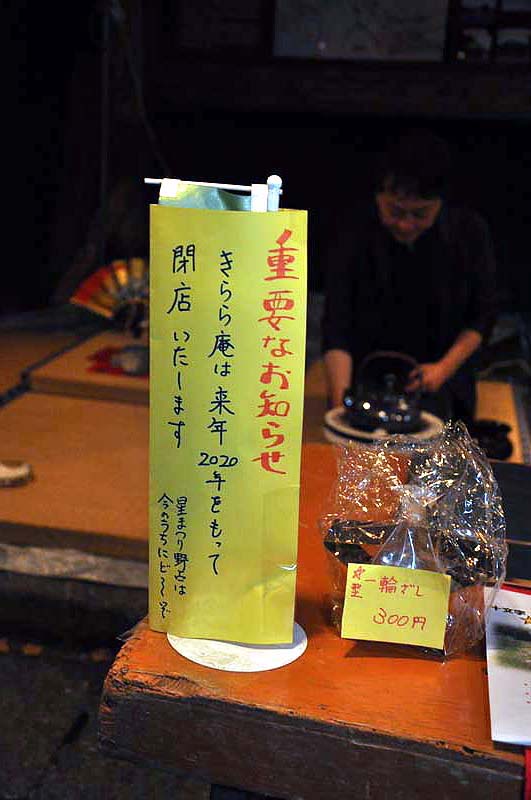 重要なお知らせ
きらら庵は来年2020年をもって
閉店いたします
星まつり野点は
今のうちにど〜ぞ
一輪ざし
300円